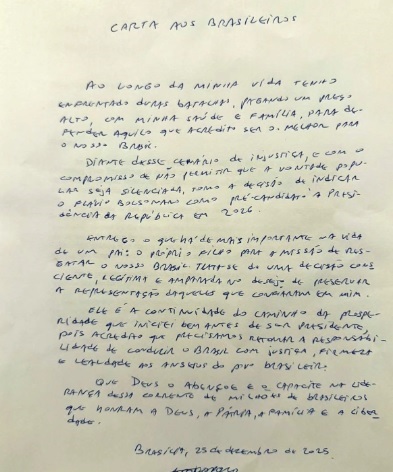 CARTA AOS BRASILEIROS
AO LONGO DA MINHA VIDA TENHO
ENFRENTADO DURAS BATALHAS, PAGANDO UM PREÇO
ALTO, COM MINHA SAÚDE E FAMÍLIA, PARA DE-
FENDER AQUILO QUE ACREDITO SER O MELHOR PARA
O NOSSO BRASIL.
DIANTE DESSE CENÁRIO DE INJUSTIÇA, E COM O
COMPROMISSO DE NÃO PERMITIR QUE A VONTADE POPU-
LAR SEJA SILENCIADA, TOMO A DECISÃO DE INDICAR
O FLÁVIO BOLSONARO COMO PRÉ-CANDIDATO À PRESI-
DÊNCIA DA REPÚBLICA EM 2026.
ENTREGO O QUE HÁ DE MAIS IMPORTANTE NA VIDA
DE UM PAI: O PRÓPRIO FILHO PARA A MISSÃO DE RES-
GATAR O NOSSO BRASIL. TRATA-SE DE UMA DECISÃO CONS-
CIENTE, LEGÍTIMA E AMPARADA NO DESEJO DE PRESERVAR
A REPRESENTAÇÃO DAQUELES QUE CONFIARAM EM MIM.
ELE É A CONTINUIDADE DO CAMINHO DA PROSPE-
RIDADE QUE INICIEI BEM ANTES DE SER PRESIDENTE,
POIS ACREDITO QUE PRECISAMOS RETOMAR A RESPONSABI-
LIDADE DE CONDUZIR O BRASIL COM JUSTIÇA, FIRMEZA
E LEALDADE AOS ANSEIOS DO POVO BRASILEIRO.
QUE DEUS O ABENÇOE E O CAPACITE NA LIDE-
RANÇA DESSA CORRENTE DE MILHÕES DE BRASILEIROS
QUE HONRAM A DEUS, A PÁTRIA, A FAMÍLIA E A LIBER-
DADE.
BRASÍLIA, 25 DE DEZEMBRO DE 2025.